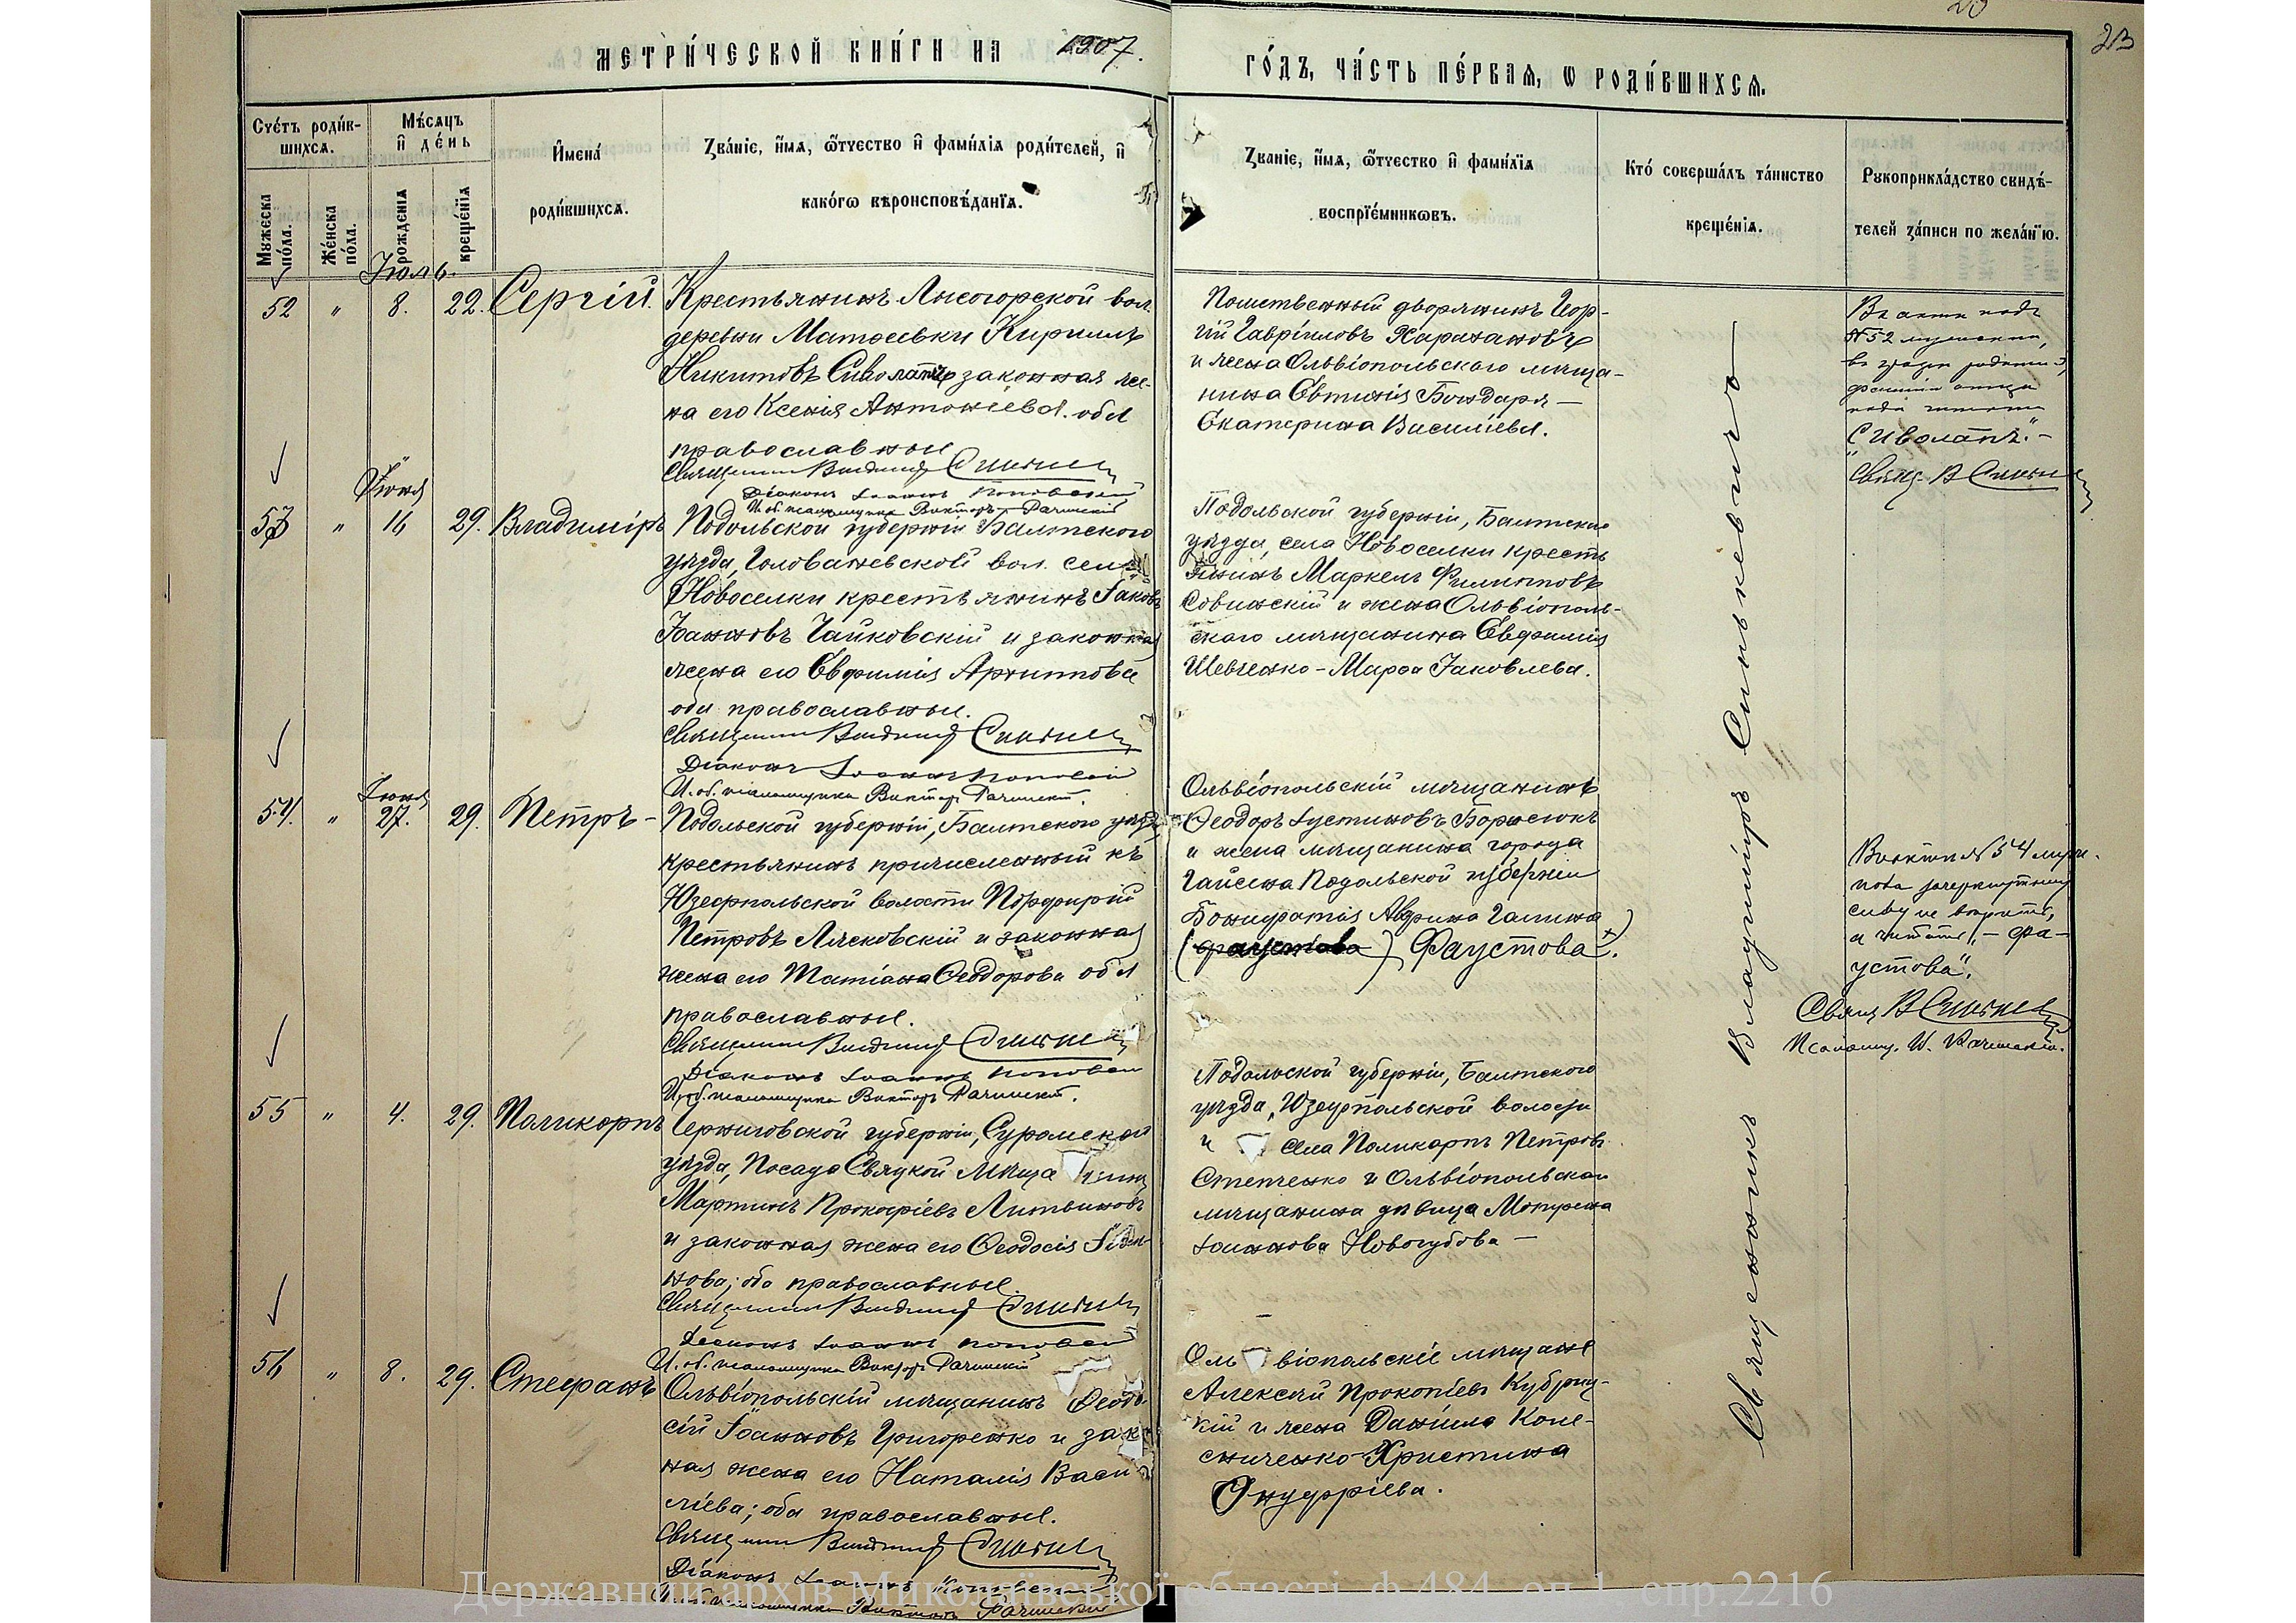 МЕТРИ́ЧЕСКОЙ КНИ́ГИ НА 1907.
ГО́ДЪ, ЧА́СТЬ ПЕ́РВАѦ, Ѡ РОДИ́ВШИХСѦ.
23
Сче́тъ роди́в-
шихсѧ.
Мѣ́сѧцъ
и҆ де́нь
Мꙋ́жеска по́ла.
Же́нска по́ла.
рожде́нїѧ
креще́нїѧ
И҆мена́
роди́вшихсѧ.
Зва́нїе, и҆́мѧ, ѻ҆́тчество и҆ фами́лїѧ роди́телей, и҆
како́гѡ вѣроисповѣ́данїѧ.
Зва́нїе, и҆́мѧ, ѻ҆́тчество и҆ фами́лїѧ
воспрїе́мникѡвъ.
Кто́ соверша́лъ та́инство
креще́нїѧ.
Рꙋкоприкла́дство свидѣ́-
телей за́писи по жела́нїю.
Іюль.
52 " 8. 22. Сергій.
Крестьянинъ Лысогорской вол.
деревни Матвеевки Кириллъ
Никитовъ Сиволапъ законная же-
на его Ксенія Антоніева. оба
православные
Священникъ Владимір Синьке
Діаконъ Іоаннъ Поповскій
И. об. псаломщика Викторъ Рачинскій
Потомственный дворянинъ Геор-
гій Гавріиловъ Харихановъ
и жена Ольвіопольскаго мѣща-
нина Евтихія Бондаря —
Екатерина Васильева.
Въ актѣ подъ
№ 52 мужескому,
въ графѣ родители,
фамилія отца
надо читать
"Сиволапъ." —
Свящ. В Синьке
Іюня
53 " 16 29. Владиміръ
Подольской губерніи Балтскаго
уѣзда, Голованевской вол. села
Новоселки крестьянинъ Іаковъ
Іоанновъ Чайковскій и законная
жена его Евфимія Архиппова
оба православные.
Священникъ Владимір Синьке
Діаконъ Іоаннъ Поповскій
И. об. псаломщика Викторъ Рачинскій.
Подольской губерніи, Балтскаго
уѣзда, села Новоселки кресть
янинъ Маркелъ Филипповъ
Совинскій и жена Ольвіополь-
скаго мѣщанина Евфимія
Шевченко - Марѳа Іаковлева.
Іюня
54. " 27. 29. Петръ -
Подольской губерніи, Балтскаго уѣзда
крестьянинъ причисленный къ
Юзефпольской волости Порфирій
Петровъ Лясковскій и законная
жена его Татіана Ѳеодорова оба
православные.
Священникъ Владимір Синьке
Діаконъ Іоаннъ Поповскій
И. об. псаломщика Викторъ Рачинскій.
Ольвіопольскій мѣщанинъ
Ѳеодоръ Іустиновъ Борисюкъ
и жена мѣщанина города
Гайсина Подольской губерніи
Бонифатія Галина
(фаустова) Фаустова.
№ 54
зачеркнутому
не вѣрить,
а читать, — Фа-
устова".
Свящ В Синьке
Псаломщ. В. Рачинскій.
55 " 4. 29. Поликарпъ
Черниговской губерніи, Суражскаго
уѣзда, Посада Свяцкой мѣща нинъ
Мартинъ Прокофіевъ Литвиновъ
и законная жена его Ѳеодосія Іоан-
нова; оба православные
Священникъ Владимір Синьке
Діаконъ Іоаннъ Поповскій
И. об. псаломщика Викторъ Рачинскій
Подольской губерніи, Балтскаго
уѣзда, Юзефпольской волости
и села Поликарпъ Петровъ
Степченко и Ольвіопольская
мѣщанина дѣвица
Іоаннова Новогубова —
56 " 8. 29. Стефанъ
Ольвіопольскій мѣщанинъ Ѳеодо-
сій Іоанновъ Григоренко и закон
ная жена его Наталія Васи-
ліева; оба православные.
Священникъ Владимір Синьке
Діаконъ Іоаннъ Поповскій
И. об. псаломщика Викторъ Рачинскій
Оль віопольскіе мѣщане
Алексѣй Прокопіевъ
и жена Даніила Коле-
сниченко - Христина
Онуфріева.
Священникъ Владиміръ Синькевичъ
Державний архів Миколаївської області, ф.484, оп.1, спр.2216